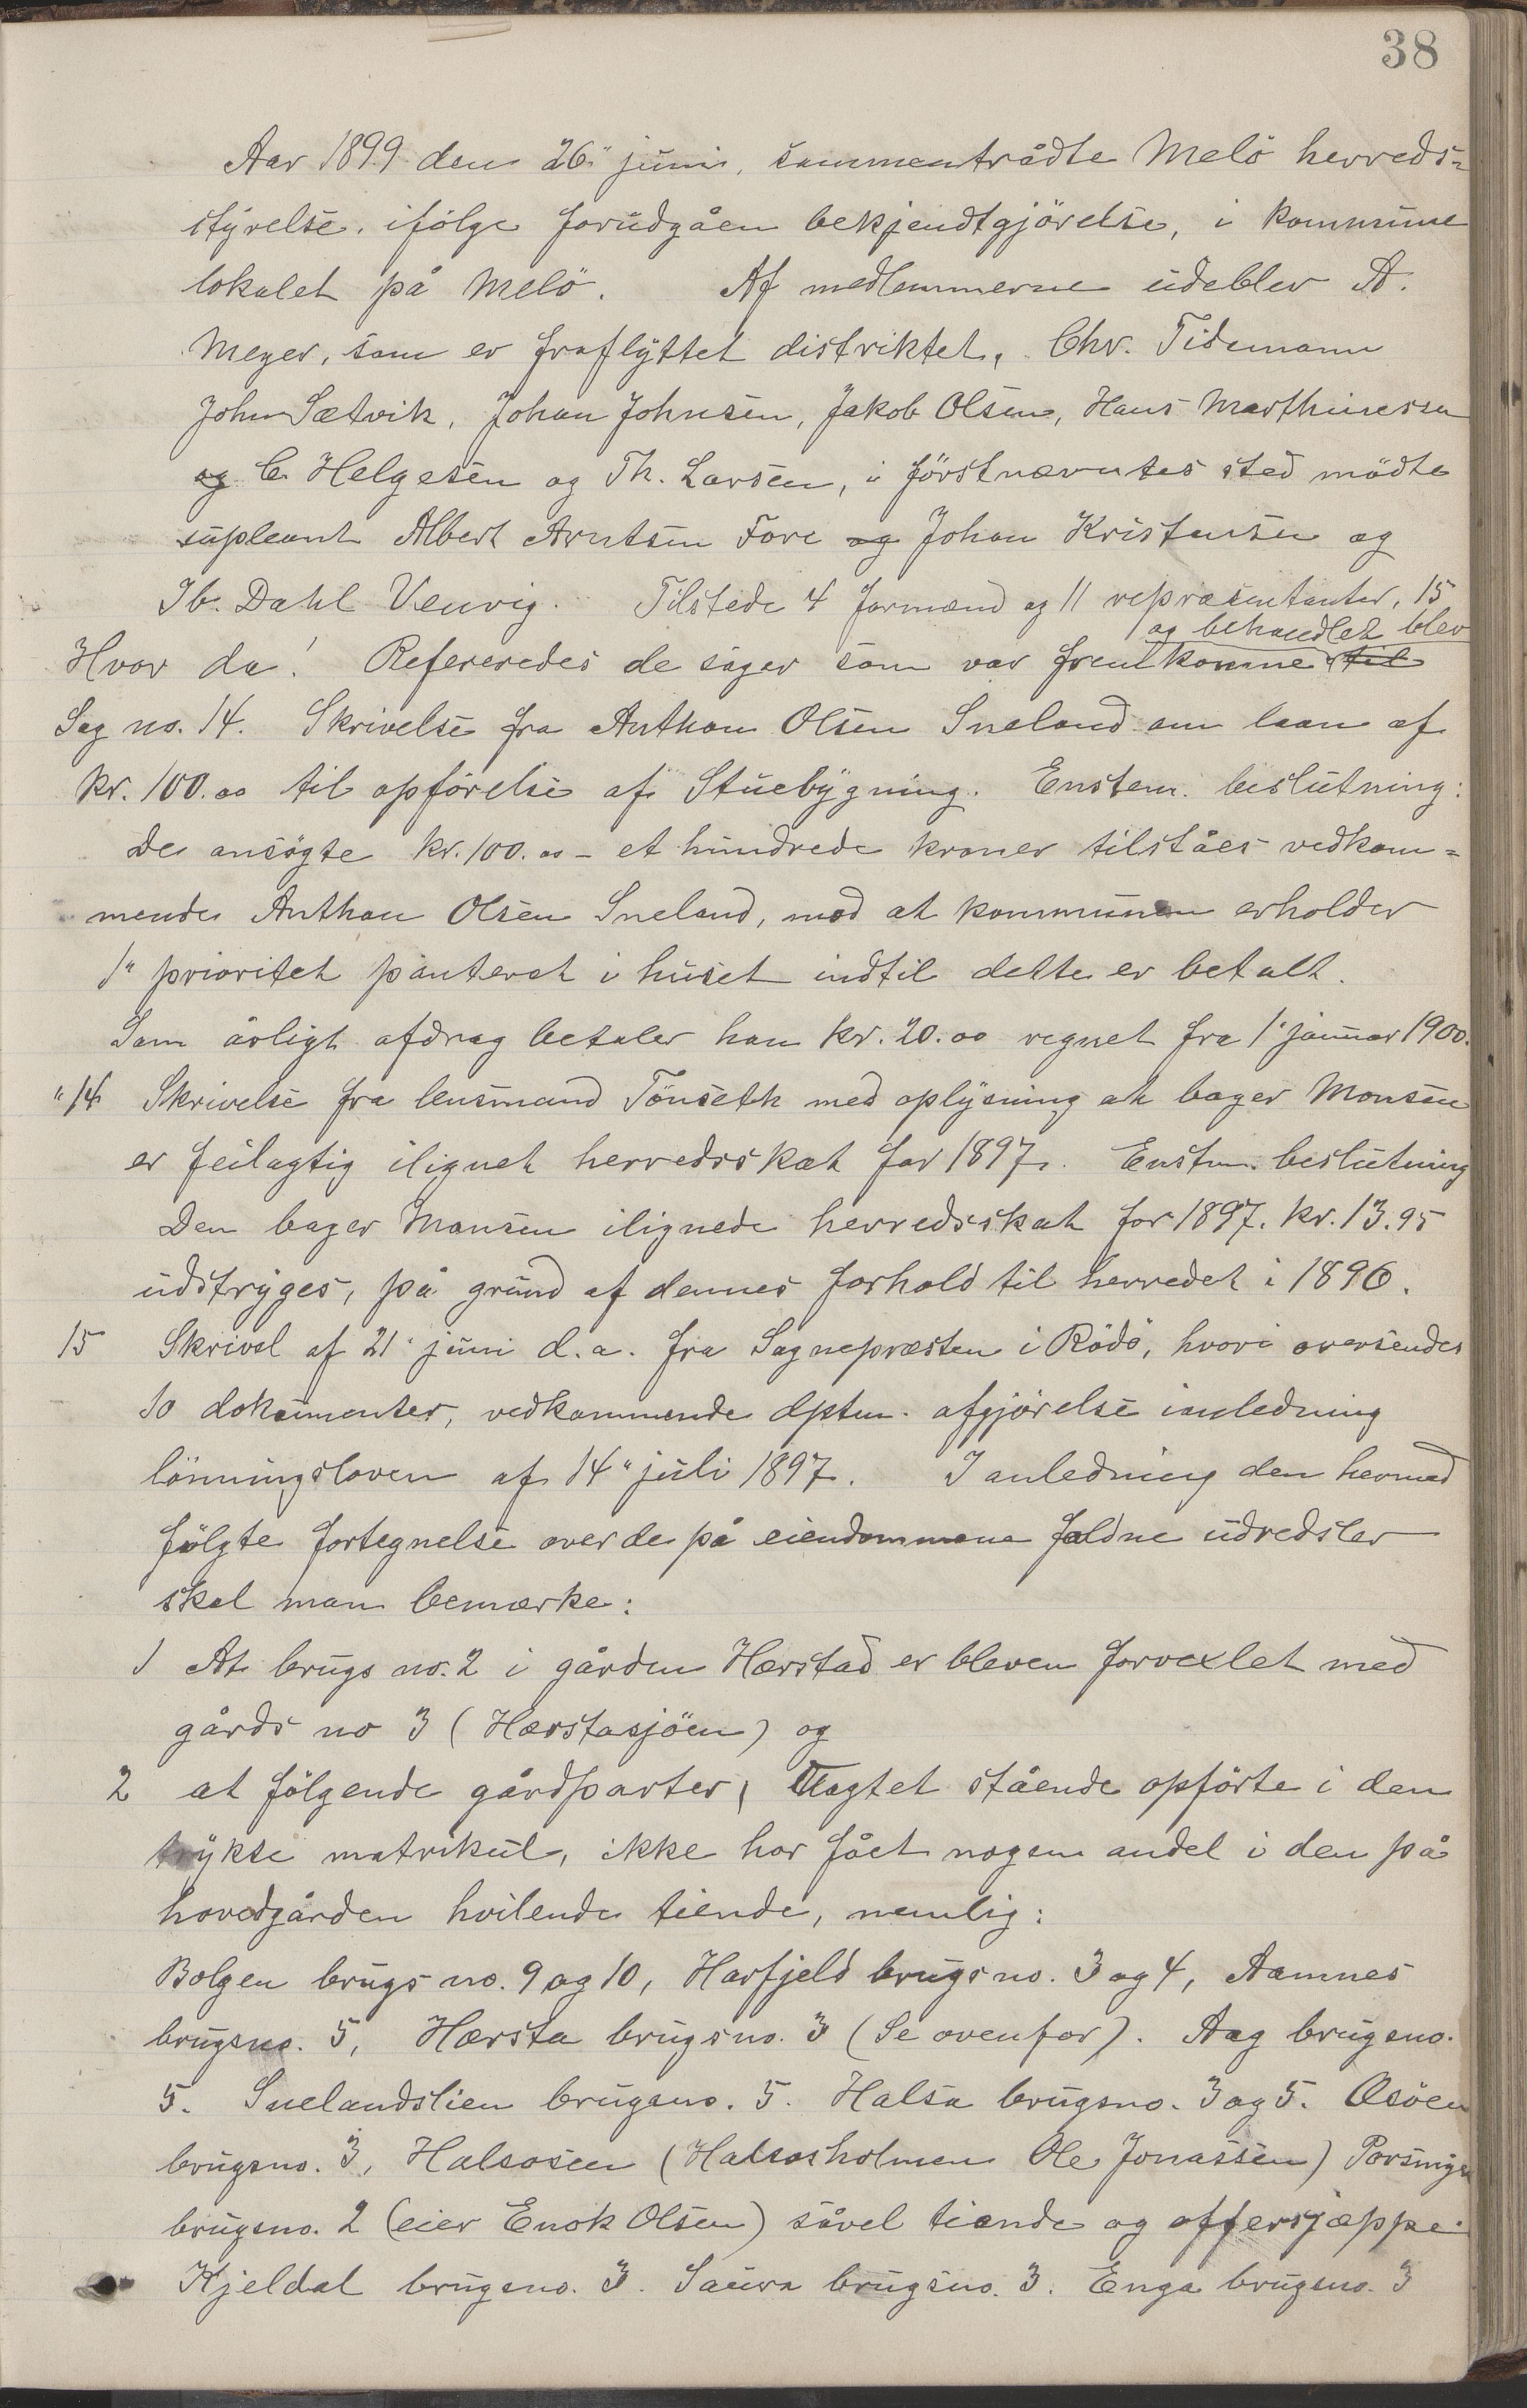 38
Aar 1899 den 26" juni, sammentrådte Melö herreds-
styrelse, ifölge forudgåen bekjendtgjörelse, i kommune
lokalet på Melö. Af medlemmerne udeblev A.
Meyer, som er fraflyttet distriktet, Chr. Tidemann
John Sætvik, Johan Johnsen, Jakob Olsen, Hans Marthinessen
og C. Helgesen og Th. Larsen, i förstnævntes sted mödte
supleant Albert Arntsen Fore og Johan Kristensen og
Ib. Dahl Venvig. Tilstede 4 formænd og 11 repræsentanter, 15
og behandlet blev
Hvor da! Refereredes de sager som var fremkomne til
Sag no. 14. Skrivelse fra Anthon Olsen Sneland om laan af
kr. 100.00 til opförelse af Stuebygning. Enstem. beslutning:
De ansögte kr. 100.00 - et hundrede kroner tilståes vedkom-
mende Anthon Olsen Sneland, mod at kommunen erholder
1" prioritet panteret i huset indtil dette er betalt.
Som årligt afdrag betaler han kr. 20.00 regnet fra 1" januar 1900.
" 14 Skrivelse fra lensmand Tönseth med oplysning at bager Monsen
er feilagtig ilignet herredsskat for 1897. Enstm. beslutning
Den bager Monsen ilignede herredsskat for 1897. kr. 13.95
udstryges, på grund af dennes forhold til herredet i 1896.
15 Skrivel af 21" juni d.a. fra Sognepræsten i Rödö, hvori oversendes
10 dokumenter, vedkommende dptm. afgjörelse i anledning
lönningsloven af 14" juli 1897. I anledning den hermed
fölgte fortegnelse over de på eiendommene faldne udredsler
skal man bemærke:
1 At brugs no. 2 i gården Hærstad er bleven forvexlet med
gårds no 3 (Hærstasjöen) og
2 at fölgende gårdparter, uagtet stående opförte i den
trykte matrikul, ikke har fået nogen andel i den på
hovedgården hvilende tiende, nemlig:
Bolgen brugs no. 9 og 10, Harfjeld brugs no. 3 og 4, Aamnes
brugsno. 5, Hærsta brugsno. 3 (Se ovenfor). Aag brugsno.
5. Snelandslien brugsno. 5. Halsa brugsno. 3 og 5. Osöen
brugsno. 3, Halsosen (Halsosholmen Ole Jonassen)
brugsno. 2 (eier Enok Olsen) såvel tiende og offersjæppe.
Kjeldal brugsno. 3. Saura brugsno. 3. Enga brugsno. 3